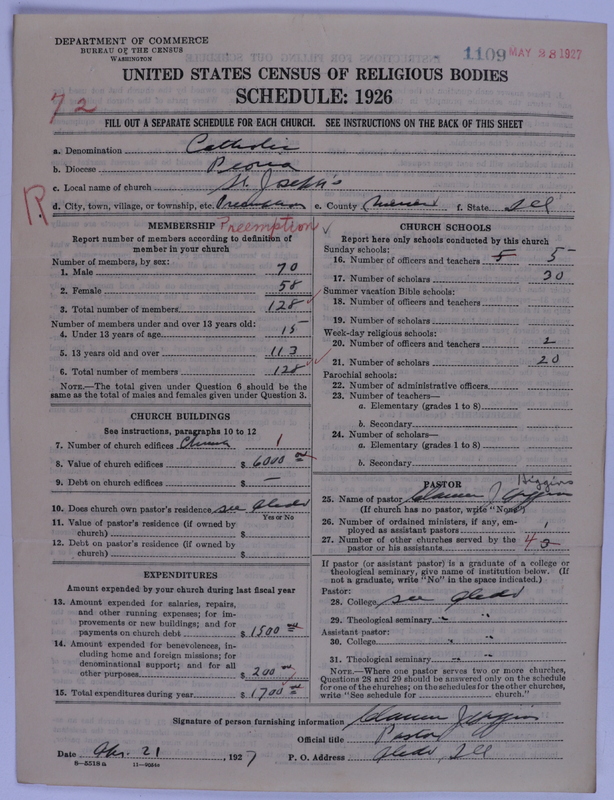 DEPARTMENT OF COMMERCE
BUREAU OF THE CENSUS
WASHINGTON
1109 MAY 28 1927
UNITED STATES CENSUS OF RELIGIOUS BODIES
SCHEDULE: 1926
72
FILL OUT A SEPARATE SCHEDULE FOR EACH CHURCH. SEE INSTRUCTIONS ON THE BACK OF THIS SHEET
a. Denomination Catholic
b. Diocese Peoria
c. Local name of church St. Joseph's
R
d. City, town, village, or township, etc. Preemption e. County Mercer f. State Ill
MEMBERSHIP Preemption
Report number of members according to definition of
member in your church
Number of members, by sex:
1. Male 70
2. Female 58
3. Total number of members 128
Number of members under and over 13 years old:
4. Under 13 years of age 15
5. 13 years old and over 113
6. Total number of members 128
NOTE.—The total given under Question 6 should be the
same as the total of males and females given under Question 3.
CHURCH BUILDINGS
See instructions, paragraphs 10 to 12
7. Number of church edifices Church 1
8. Value of church edifices $ 6000
9. Debt on church edifices $ —
10. Does church own pastor's residence see Aledo
Yes or No
11. Value of pastor's residence (if owned by
church) $
12. Debt on pastor's residence (if owned by
church) $
EXPENDITURES
Amount expended by your church during last fiscal year
13. Amount expended for salaries, repairs,
and other running expenses; for im-
provements or new buildings; and for
payments on church debt $ 1500
14. Amount expended for benevolences, in-
cluding home and foreign missions; for
denominational support; and for all
other purposes $ 200
15. Total expenditures during year $ 1700
CHURCH SCHOOLS
Report here only schools conducted by this church
Sunday schools:
16. Number of officers and teachers 5 5
17. Number of scholars 30
Summer vacation Bible schools:
18. Number of officers and teachers
19. Number of scholars
Week-day religious schools:
20. Number of officers and teachers 2
21. Number of scholars 20
Parochial schools:
22. Number of administrative officers
23. Number of teachers—
a. Elementary (grades 1 to 8)
b. Secondary
24. Number of scholars—
a. Elementary (grades 1 to 8)
b. Secondary
PASTOR Higgins
25. Name of pastor J Higgins
(If church has no pastor, write "None")
26. Number of ordained ministers, if any, em-
ployed as assistant pastors 1
27. Number of other churches served by the
pastor or his assistants 4
If pastor (or assistant pastor) is a graduate of a college or
theological seminary, give name of institution below. (If
not a graduate, write "No" in the space indicated.)
Pastor:
28. College see Aledo
29. Theological seminary " "
Assistant pastor:
30. College " "
31. Theological seminary " "
NOTE.—Where one pastor serves two or more churches,
Questions 28 and 29 should be answered only on the schedule
for one of the churches; on the schedules for the other churches,
write "See schedule for ________ church."
Signature of person furnishing information J Higgins
Official title Pastor
Date Apr. 21, 1927 P. O. Address Aledo, Ill
8-5518 a